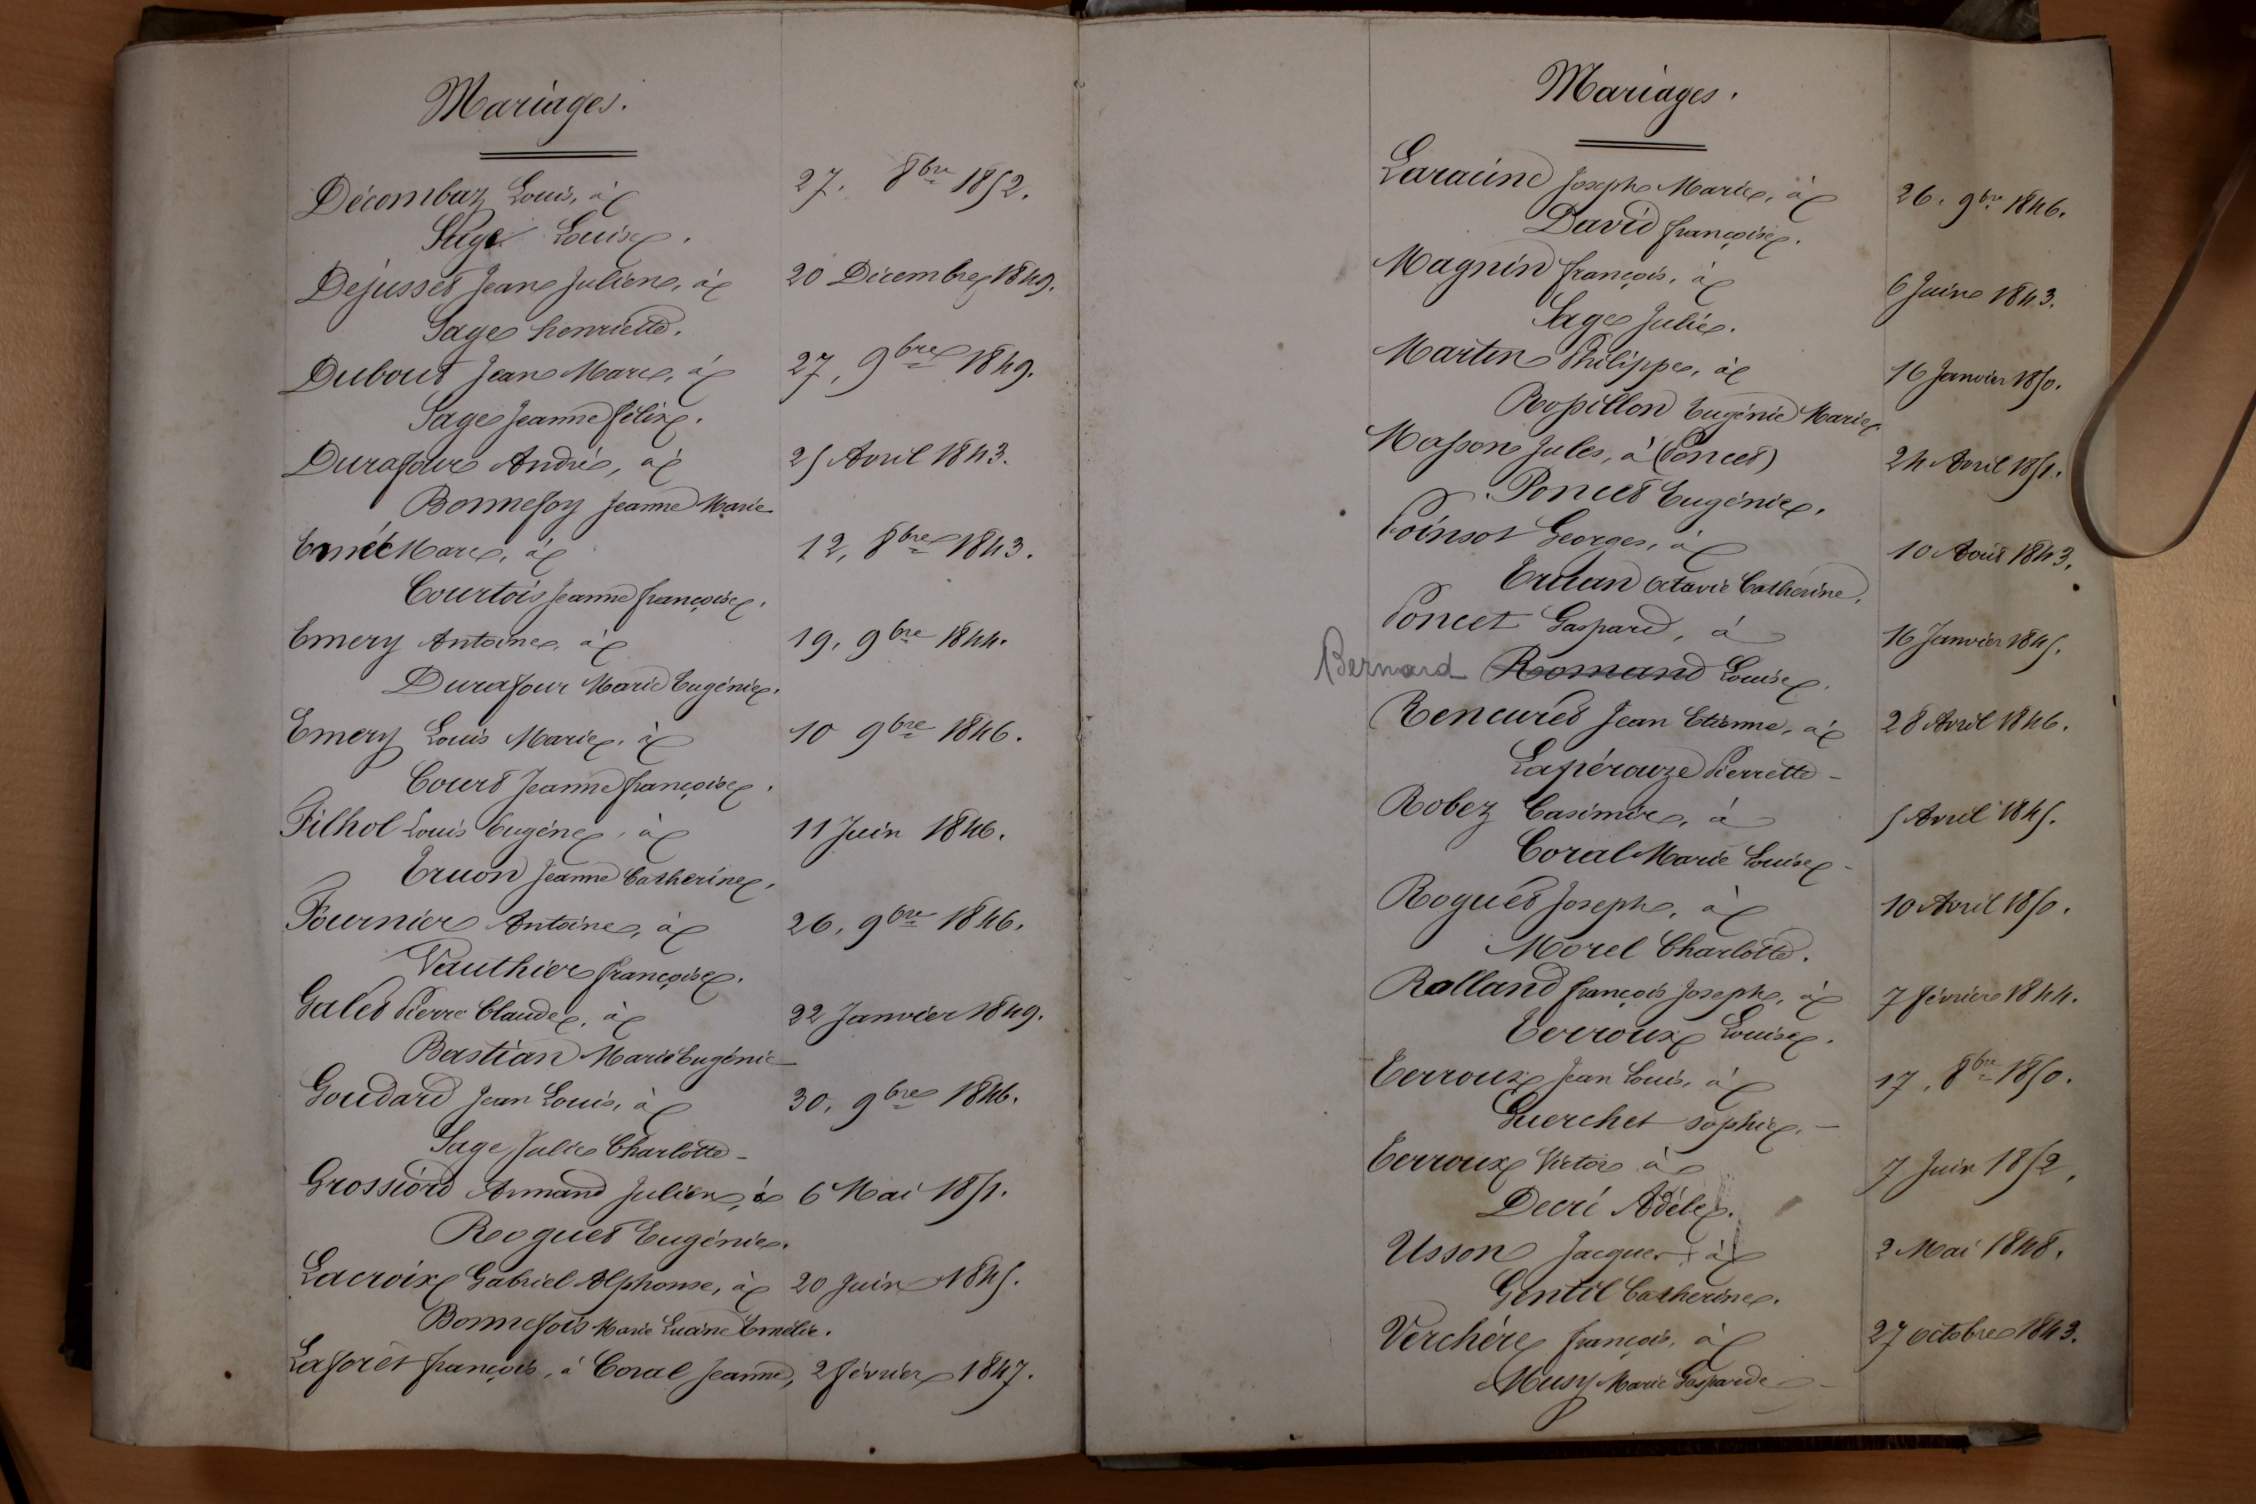 Mariages.
Décombaz Louis, à 27. 8bre 1852.
Sage Louise.
Dejusset Jean Julien, à 20 Décembre 1849.
Sage henriette.
Dubout Jean Marc, à 27, 9bre 1849.
Sage Jeanne félix.
Durafour André, à 25 Avril 1843.
Bonnefoy Jeanne Marie
Marc, à 12, 8bre 1843.
Courtois Jeanne françoise.
Emery Antoine, à 19, 9bre 1844.
Durafour Marie Eugénie.
Emery Louis Marie, à 10 9bre 1846.
Court Jeanne françoise.
Filhol Louis Eugène, à 11 Juin 1846.
Truon Jeanne Catherine,
Fournier Antoine, à 26, 9bre 1846.
Vauthier françoise.
Galet Pierre Claude, à 22 Janvier 1849.
Bastian Marie Eugénie
Goudard Jean Louis, à 30, 9bre 1846.
Sage Julie Charlotte -
Grossiord Armand Julien, à 6 Mai 1851.
Roguet Eugénie.
Lacroix Gabriel Alphonse, à 20 Juin 1845.
Bonnefois Marie Lucine Emélie.
Laforêt françois, à Coral Jeanne, 2 février 1847.
Mariages.
Laracine Joseph Marie, à 26. 9bre 1846.
David françoise.
Magnin françois, à 6 Juin 1843.
Sage Julie.
Martin Philippe, à 16 Janvier 1850.
Ropillon Eugénie Marie
Masson Jules, à (Poncet) 24 Avril 1851.
Poncet Eugénie.
Poinsot Georges, à 10 Août 1843.
Truan Octavie Catherine.
Poncet Gaspard, à 16 Janvier 1845.
Bernard Romand Louise.
Rencuret Jean Etienne, à 28 Avril 1846.
Lapérouze Pierrette -
Robez Casimir, à 5 Avril 1845.
Coral Marie Louise -
Roguet Joseph, à 10 Avril 1850.
Morel Charlotte.
Rolland françois Joseph, à 7 février 1844.
Terroux Louise.
Terroux Jean Louis, à 17, 8bre 1850.
Guerchet Sophie. -
Terroux Victor à 7 Juin 1852.
Decré Adèle.
Usson Jacques à 2 Mai 1848.
Gentil Catherine.
Verchère françois, à 27 octobre 1843.
Musy Marie Gasparde -